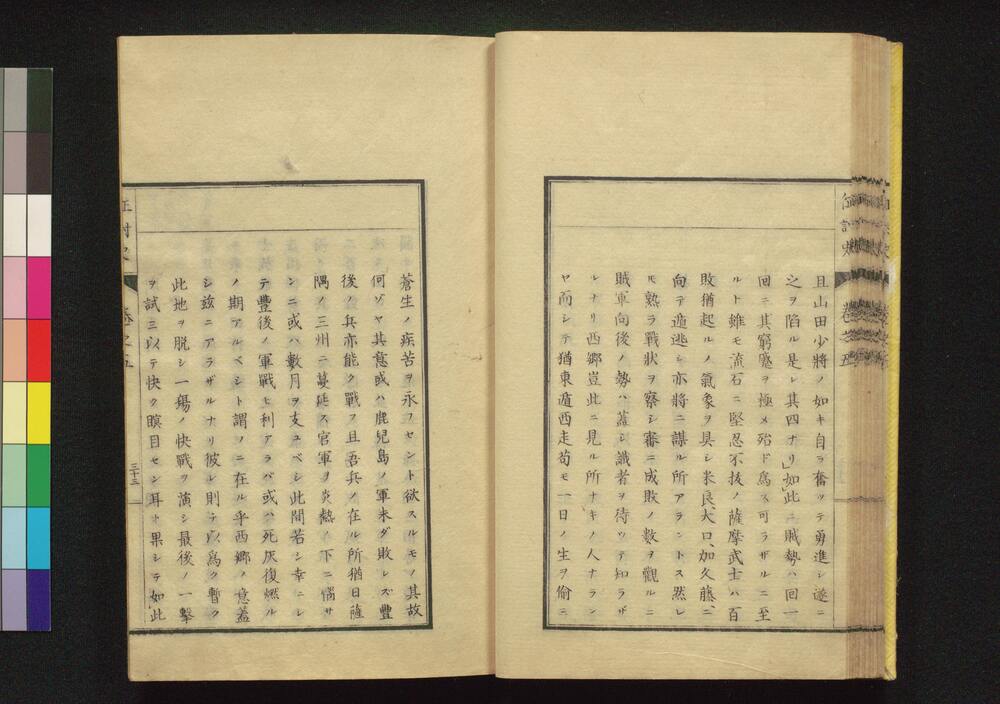 且山田少將ノ如キ自ラ奮ツテ勇進シ遂ニ
之ヲ陷ル是レ其四ナリ」如此ニ賊勢ハ回一
回ニ其窮蹙ヲ極メ殆ド爲ス可ラザルニ至
ルト雖モ流石ニ堅忍不拔ノ薩摩武士ハ百
敗猶起ルノ氣象ヲ具シ米良、大口、加久藤、ニ
向テ遁逃シ亦將ニ謀ル所アラントス然レ
モ熟ラ戰狀ヲ察シ審ニ成敗ノ數ヲ觀ルニ
賊軍向後ノ勢ハ蓋シ識者ヲ待ツテ知ラザ
レナリ西郷豈此ニ見ル所ナキノ人ナラン
ヤ而シテ猶東遁西走苟モ一日ノ生ヲ偷ニ
蒼生ノ疾苦ヲ永フセント欲スルモノ其故
何ゾヤ其意或ハ鹿兒島ノ軍未ダ敗レズ豐
後ノ兵亦能ク戰フ且吾兵ノ在ル所猶日薩
隅ノ三州ニ蔓延ス官軍ヲ炎熱ノ下ニ惱サ
ンニ或ハ數月ヲ支ユベシ此間若シ幸ニシ
テ豐後ノ軍戰ヒ利アラバ或ハ死灰復燃ル
ノ期アルベシト謂フニ在ル乎西郷ノ意蓋
シ玆ニアラザルナリ彼レ則チ以爲ク暫ク
此地ヲ脱シ一塲ノ快戰ヲ演シ最後ノ一擊
ヲ試ミ以テ快ク瞑目セン耳ト果シテ如此
卷之五
三十三